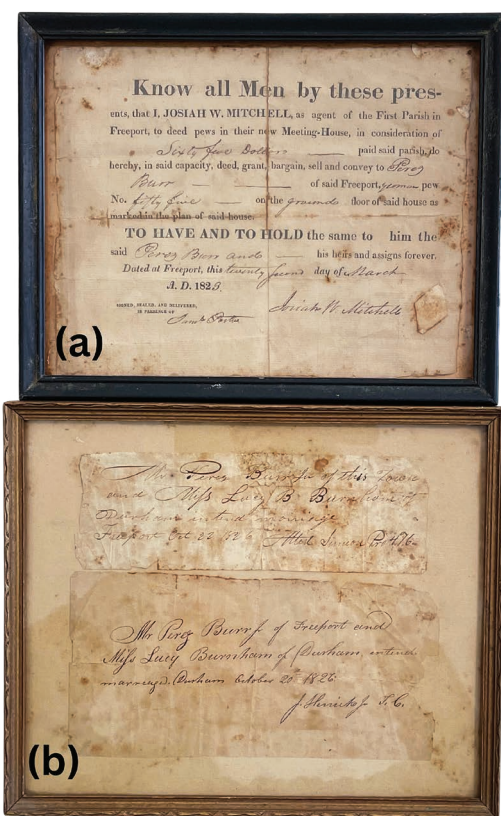 Know all Men by these pres-
ents, that I, JOSIAH W. MITCHELL, as agent of the First Parish in
Freeport, to deed pews in their new Meeting-House, in consideration of
Sixty five Dollars paid said parish, do
hereby, in said capacity, deed, grant, bargain, sell and convey to Perez
Burr of said Freeport, yeoman pew
No. fifty five on the ground floor of said house as
marked in the plan of said house.
TO HAVE AND TO HOLD the same to him the
said Perez Burr and his heirs and assigns forever.
Dated at Freeport, this twenty second day of March
A. D. 182
SIGNED, SEALED, AND DELIVERED,
IN PRESENCE OF
Josiah W. Mitchell
(a)
Mr. Perez Burr Jr of this Town
and Miss Lucy B Burnham of
Durham intend marriage
Freeport Oct 22 1826 Attest Simeon
Mr Perez Burr Jr of Freeport and
Miss Lucy Burnham of Durham, intend
marriage, Durham October 20th 1826
T. C.
(b)